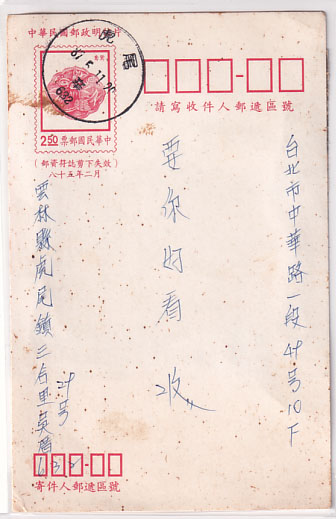 中華民國郵政明信片
虎尾
87.5.11.20
632
2.50 中華民國郵票
(郵資符誌剪下失效)
八十五年二月
請寫收件人郵遞區號
台北市中華路一段49号10下
要你好看 收
雲林縣虎尾鎮三合里吳厝
29号
632
寄件人郵遞區號